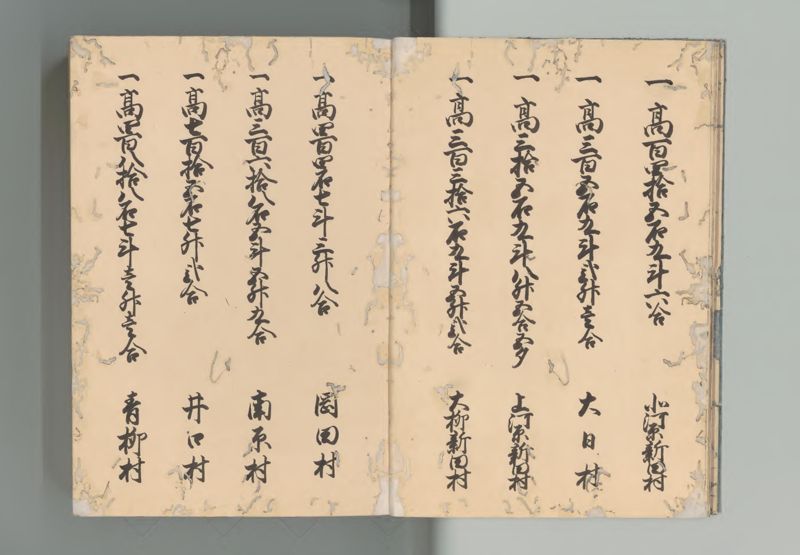 一 高百四拾五石九斗六合 小河原新田村
一 高三百五石九斗弐升壱合 大日村
一 高三拾五石九斗八升五合五夕 上河原新田村
一 高三百三拾六石九斗五升弐合 大柳新田村
一 高四百四石七斗三升八合 岡田村
一 高三百六拾八石五斗五升九合 南原村
一 高七百拾五石七升弐合 井口村
一 高四百八拾八石七斗壱升壱合 青柳村